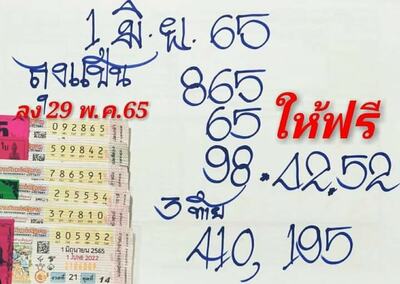 1 มิ.ย. 65
ลุงแป๊น
ลง 29 พ.ค.65
865
65
ให้ฟรี
98.42.52
3 ท้าย
410, 195
092865
599842
786591
255554
377810
805952
1 มิถุนายน 2565
1 JUNE 2022
งวดที่ 21 ชุดที่ 14